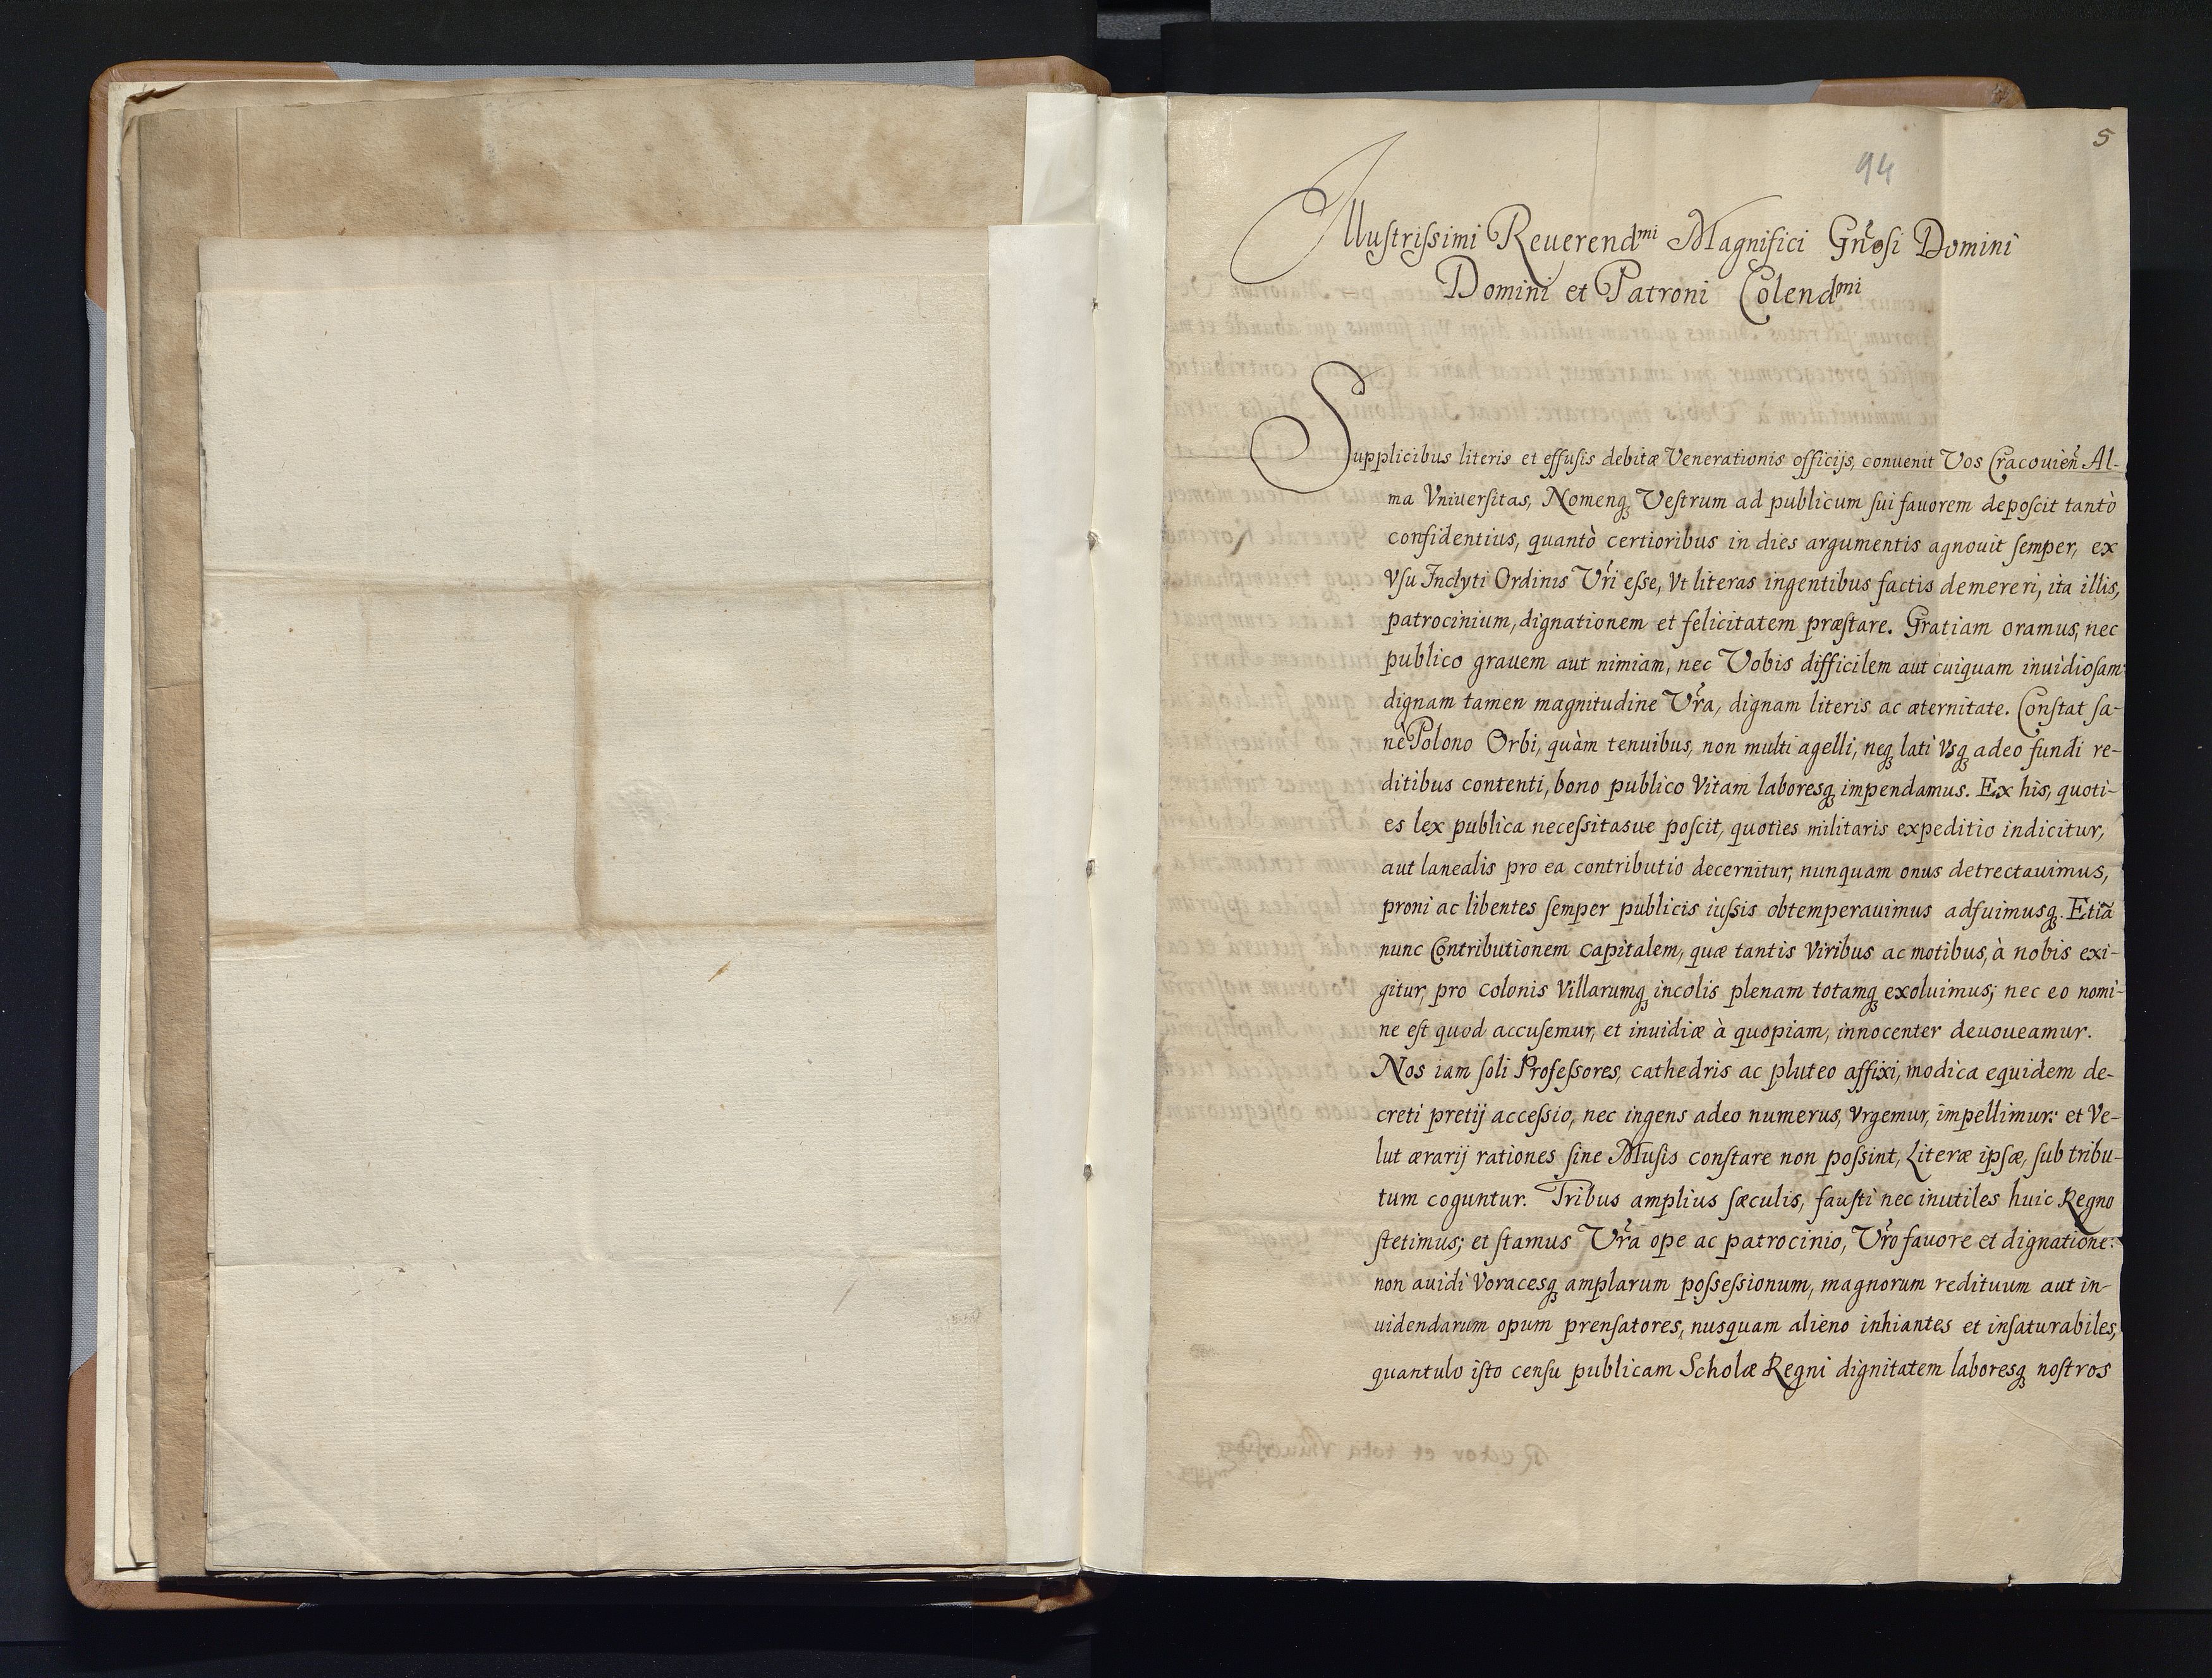 5
94
Illustrissimi Reuerend^mi Magnifici Gn̄osi Domini
Domini et Patroni Colend^mi
Supplicibus literis et effusis debitæ Venerationis officijs, conuenit Vos Cracouien̄ Al-
ma Vniuersitas, Nomenq́ꝫ Vestrum ad publicum sui fauorem deposcit tantò
confidentius, quantò certioribus in dies argumentis agnouit semper, ex
vsu Inclyti Ordinis Vr̄i esse, Vt literas ingentibus factis demereri, ita illis,
patrocinium, dignationem et felicitatem præstare. Gratiam oramus, nec
publico grauem aut nimiam, nec Vobis difficilem aut cuiquam inuidiosam
dignam tamen magnitudine Vr̄a, dignam literis ac æternitate. Constat sa-
nè Polono Orbi, quàm tenuibus, non multi agelli, neqꝫ lati Vsqꝫ adeo fundi re-
ditibus contenti, bono publico Vitam laboresqꝫ impendamus. Ex his, quoti-
es lex publica necessitasue poscit, quoties militaris expeditio indicitur,
aut lanealis pro ea contributio decernitur, nunquam onus detrectauimus,
proni ac libentes semper publicis iussis obtemperauimus adfuimusqꝫ. Etiā
nunc Contributionem capitalem, quæ tantis Viribus ac motibus, à nobis exi-
gitur, pro colonis Villarumqꝫ incolis plenam totamqꝫ exoluimus; nec eo nomi-
ne est quod accusemur, et inuidiæ à quopiam, innocenter deuoueamur.
Nos iam soli Professores, cathedris ac pluteo affixi, modica equidem de-
creti pretij accessio, nec ingens adeo numerus, Vrgemur, impellimur: et Ve-
lut ærarij rationes sine Musis constare non possint, Literæ ipsæ, sub tribu-
tum coguntur. Tribus amplius sæculis, fausti nec inutiles huic Regno
stetimus; et stamus Vr̄a ope ac patrocinio, Vr̄o fauore et dignatione:
non auidi Voracesqꝫ amplarum possessionum, magnorum redituum aut in-
uidendarum opum prensatores, nusquam alieno inhiantes et insaturabiles,
quantulo isto censu publicam Scholæ Regni dignitatem laboresqꝫ nostros